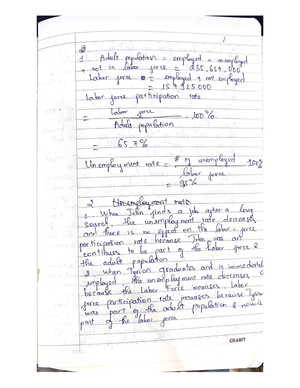 1
1. Adult population = employed + unemployed
+ not in labor force = 235,654,000
Labor force = employed + not employed
= 154,925,000
Labor force participation rate
= Labor force . 100%
Adult population
= 65,7%
Unemployment rate = # of unemployed 100%
labor force
= 95%
2 Unemployment rate
1. When John finds a job after a long
search, the unemployment rate decreases
and there is no effect on the labor-force
participation rate because John was and
continues to be part of the labor force &
the adult population
2. When Tyrion graduates and is immediately
employed the unemployment rate decreases
because the Labor Force increases. Labor
force participation rate increases because Tyrion
was part of the adult population & now is
part of the labor force